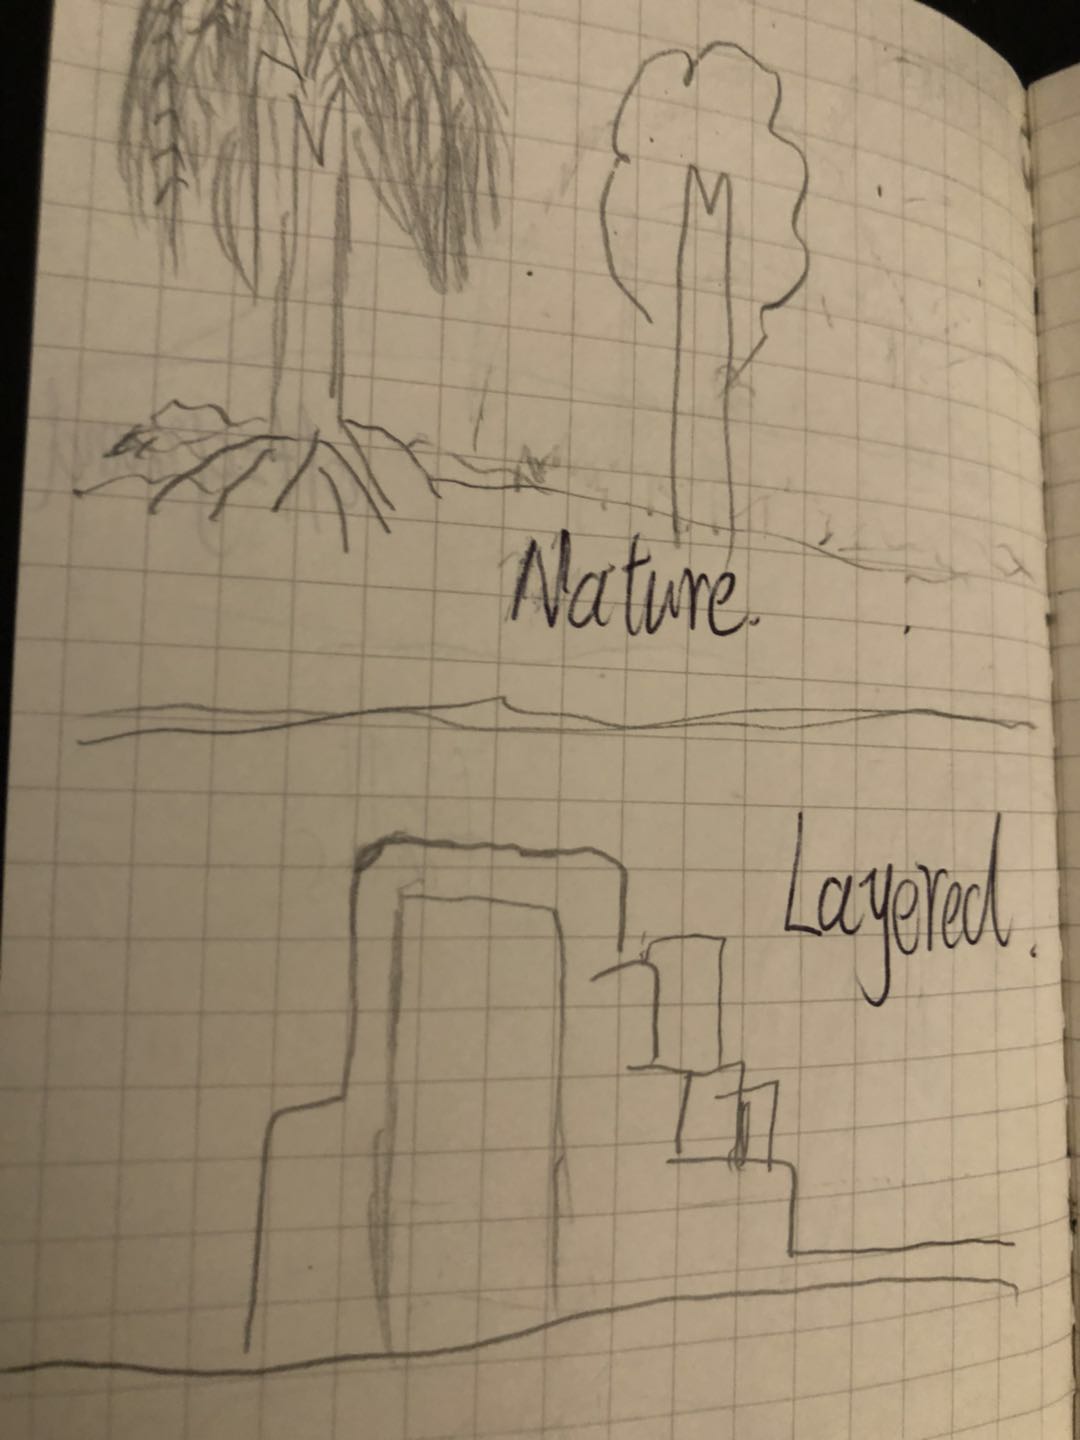 Nature.
Layered.